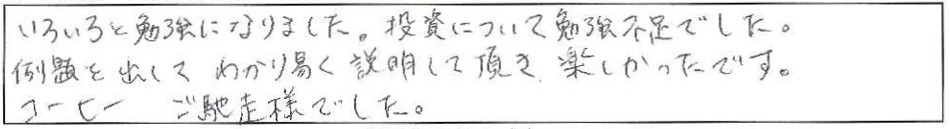 いろいろと勉強になりました。投資について勉強不足でした。
例題を出して わかり易く説明して頂き、楽しかったです。
コーヒー ご馳走様でした。